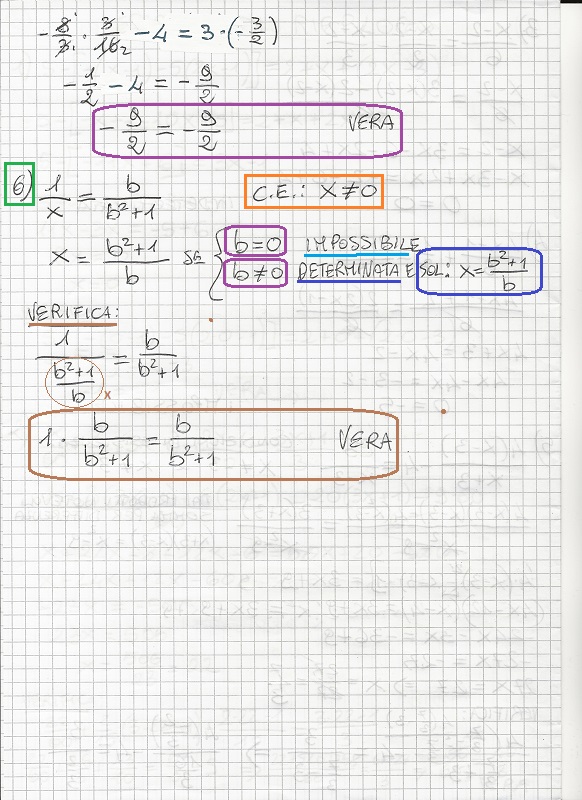 -8/3 · 3/16 - 4 = 3 · (-3/2)
-1/2 - 4 = -9/2
-9/2 = -9/2 VERA
6) 1/x = b/(b²+1) C.E.: X≠0
x = (b²+1)/b SE { b=0 IMPOSSIBILE
b≠0 DETERMINATA E SOL: x = (b²+1)/b
VERIFICA:
1/((b²+1)/b) = b/(b²+1)
x
1 · b/(b²+1) = b/(b²+1) VERA